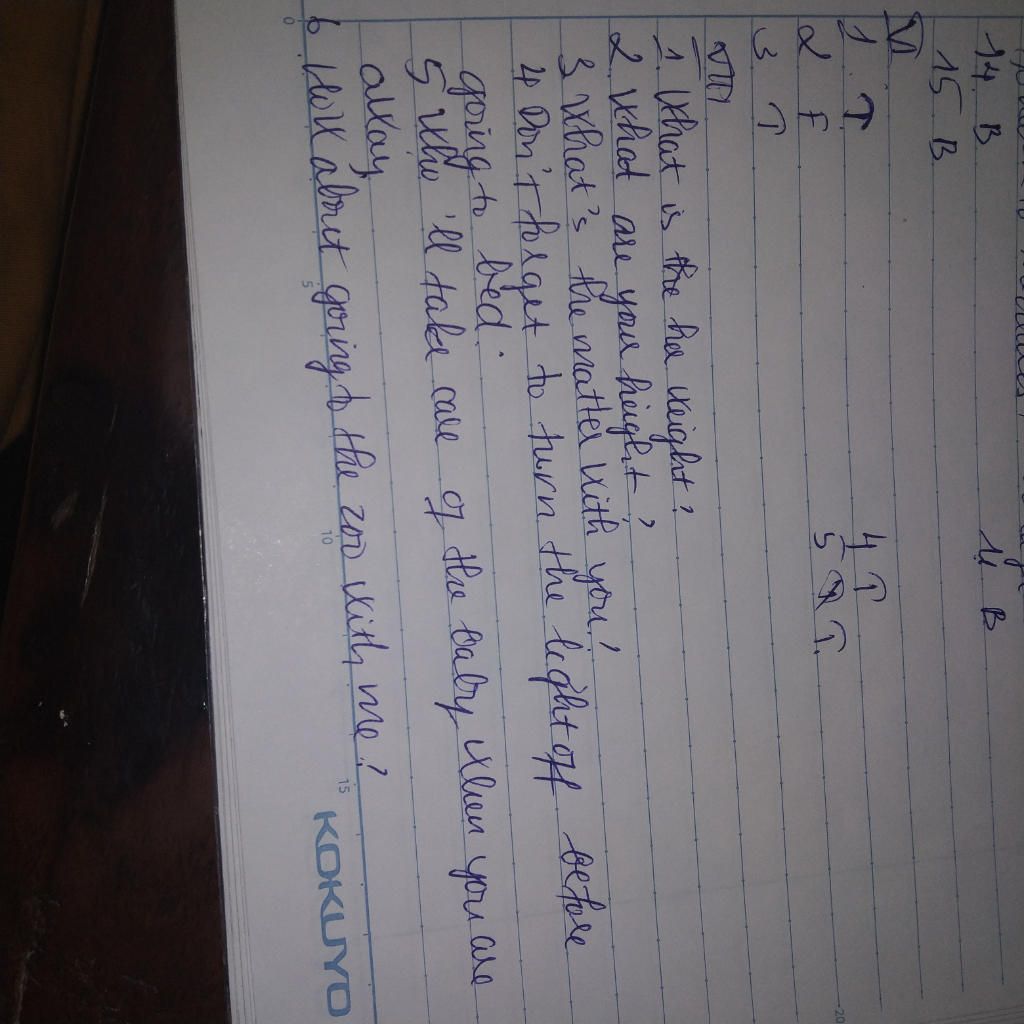 14 B
11 B
15 B
VI
1 T
4 T
2 F
5 T
3 T
VIII
1 What is the her weight?
2 What are you height?
3 What's the matter with you?
4 Don't forget to turn the light off before
going to bed.
5 Who 'll take care of the baby when you are
away
6 How about going to the zoo with me?
0 5 10 15 20
KOKUYO